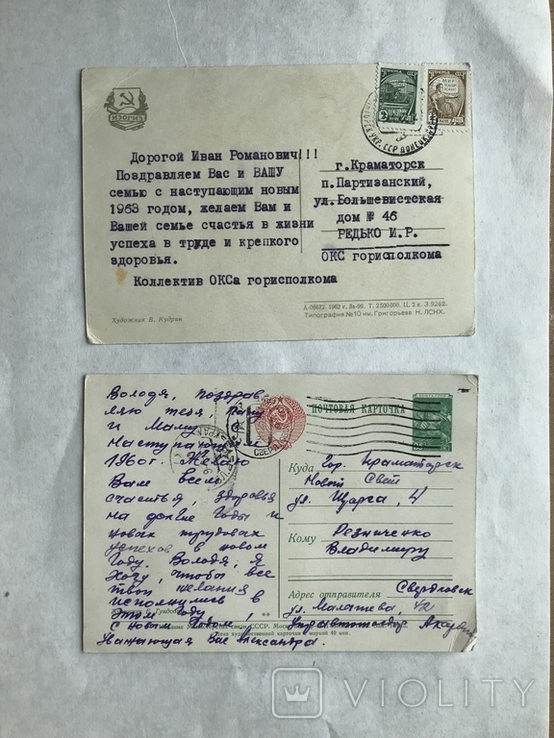 ИЗОГИЗ
Дорогой Иван Романович!!!
Поздравляем Вас и ВАШУ
семью с наступающим новым
1963 годом, желаем Вам и
Вашей семье счастья в жизни
успеха в труде и крепкого
здоровья.
Коллектив ОКСа горисполкома
г.Краматорск
п.Партизанский,
ул.Большевистская
дом № 46
РЕДЬКО И.Р.
ОКС горисполкома
УКР. ССР ДОНЕЦК
Художник В. Кудрин
1962 г. Т. 2500000. Ц. 2 к. З. 9262.
Типография №10 им. Григорьева Н. ЛСНХ.
Володя, поздрав
ляю тебя, папу
и маму с
наступающим
1960г. Желаю
Вам всем
счастья, здоровья
на долгие годы и
новых трудовых
успехов в новом
году. Володя, я
хочу, чтобы все
твои желания
исполнились в
этом году
С новым годом!
Уважающая Вас Александра.
ПОЧТОВАЯ КАРТОЧКА
Куда Гор. Краматорск
Новый Свет
ул. Щорса, 4
Кому Резниченко
Владимиру
Адрес отправителя Свердловск
ул. Малышева, 42
СССР. Москва
художественной карточки с маркой 40 коп.
VIOLITY